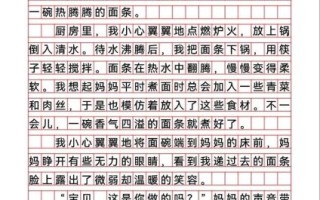 一碗热腾腾的面条。
厨房里，我小心翼翼地点燃炉火，放上锅
倒入清水。待水沸腾后，我把面条下锅，用筷
子轻轻搅拌。面条在热水中翻腾，慢慢变得柔
软。我想起妈妈平时煮面时总会加入一些青菜
和肉丝，于是也模仿着放入了这些食材。不一
会儿，一碗香气四溢的面条就煮好了。
我小心翼翼地将面碗端到妈妈的床前，妈
妈睁开有些无力的眼睛，看到我递过去的面条
脸上露出了微弱却温暖的笑容。
“宝贝，这是你做的吗？”妈妈的声音带